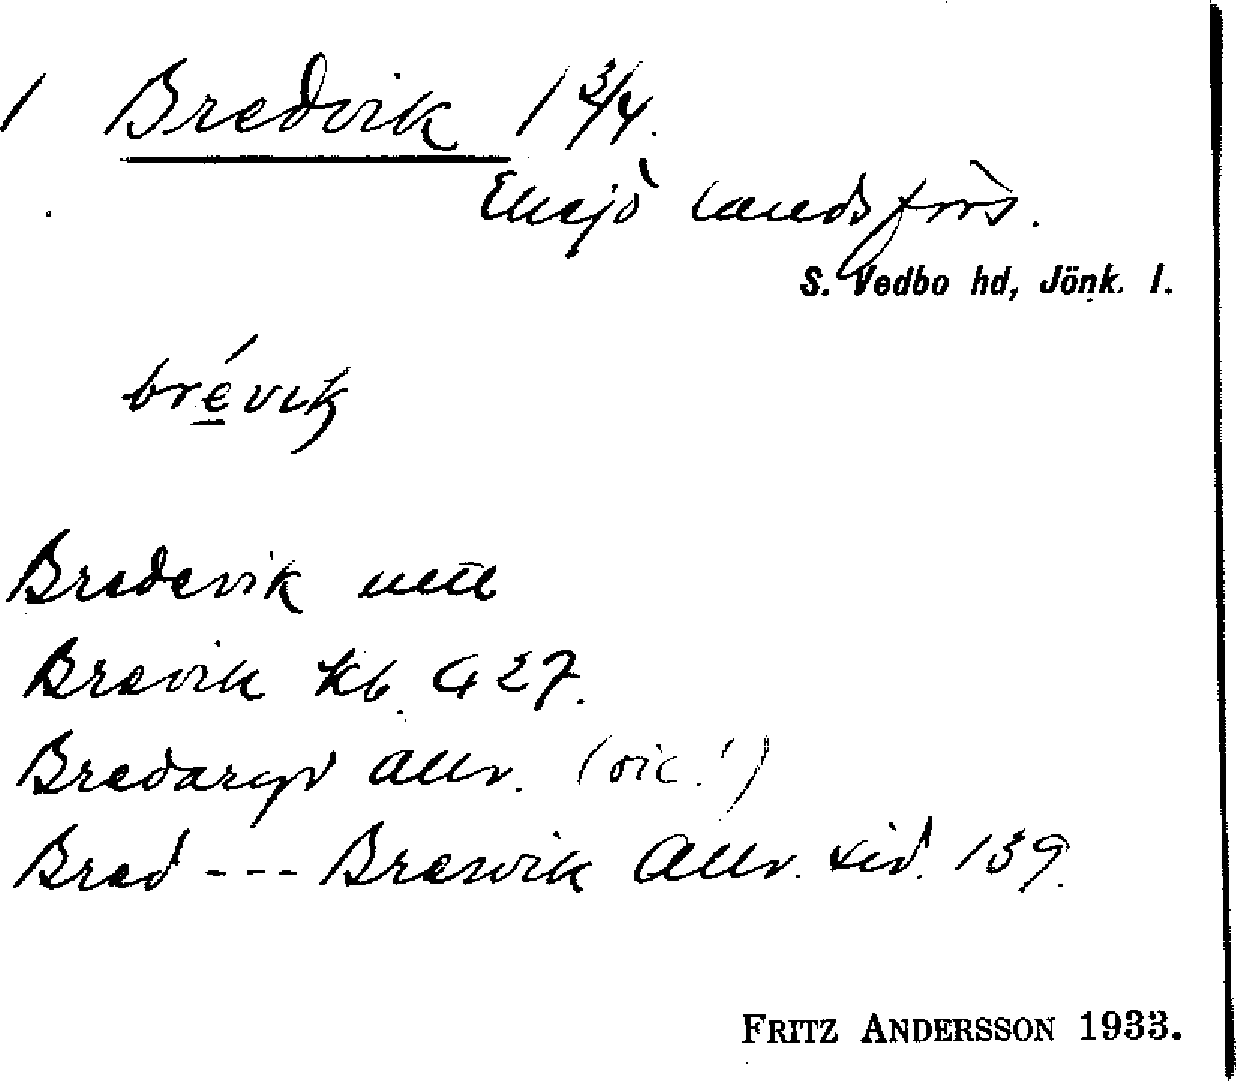 1 Bredvik 1 3/4.
Eksjö landsförs.
S. Vedbo hd, Jönk. l.
brévik
Bredevik
Brevik kb C 27.
Bredaryd Allv. (sic!)
Bred --- Bresvik Allv. sid. 139.
FRITZ ANDERSSON 1933.